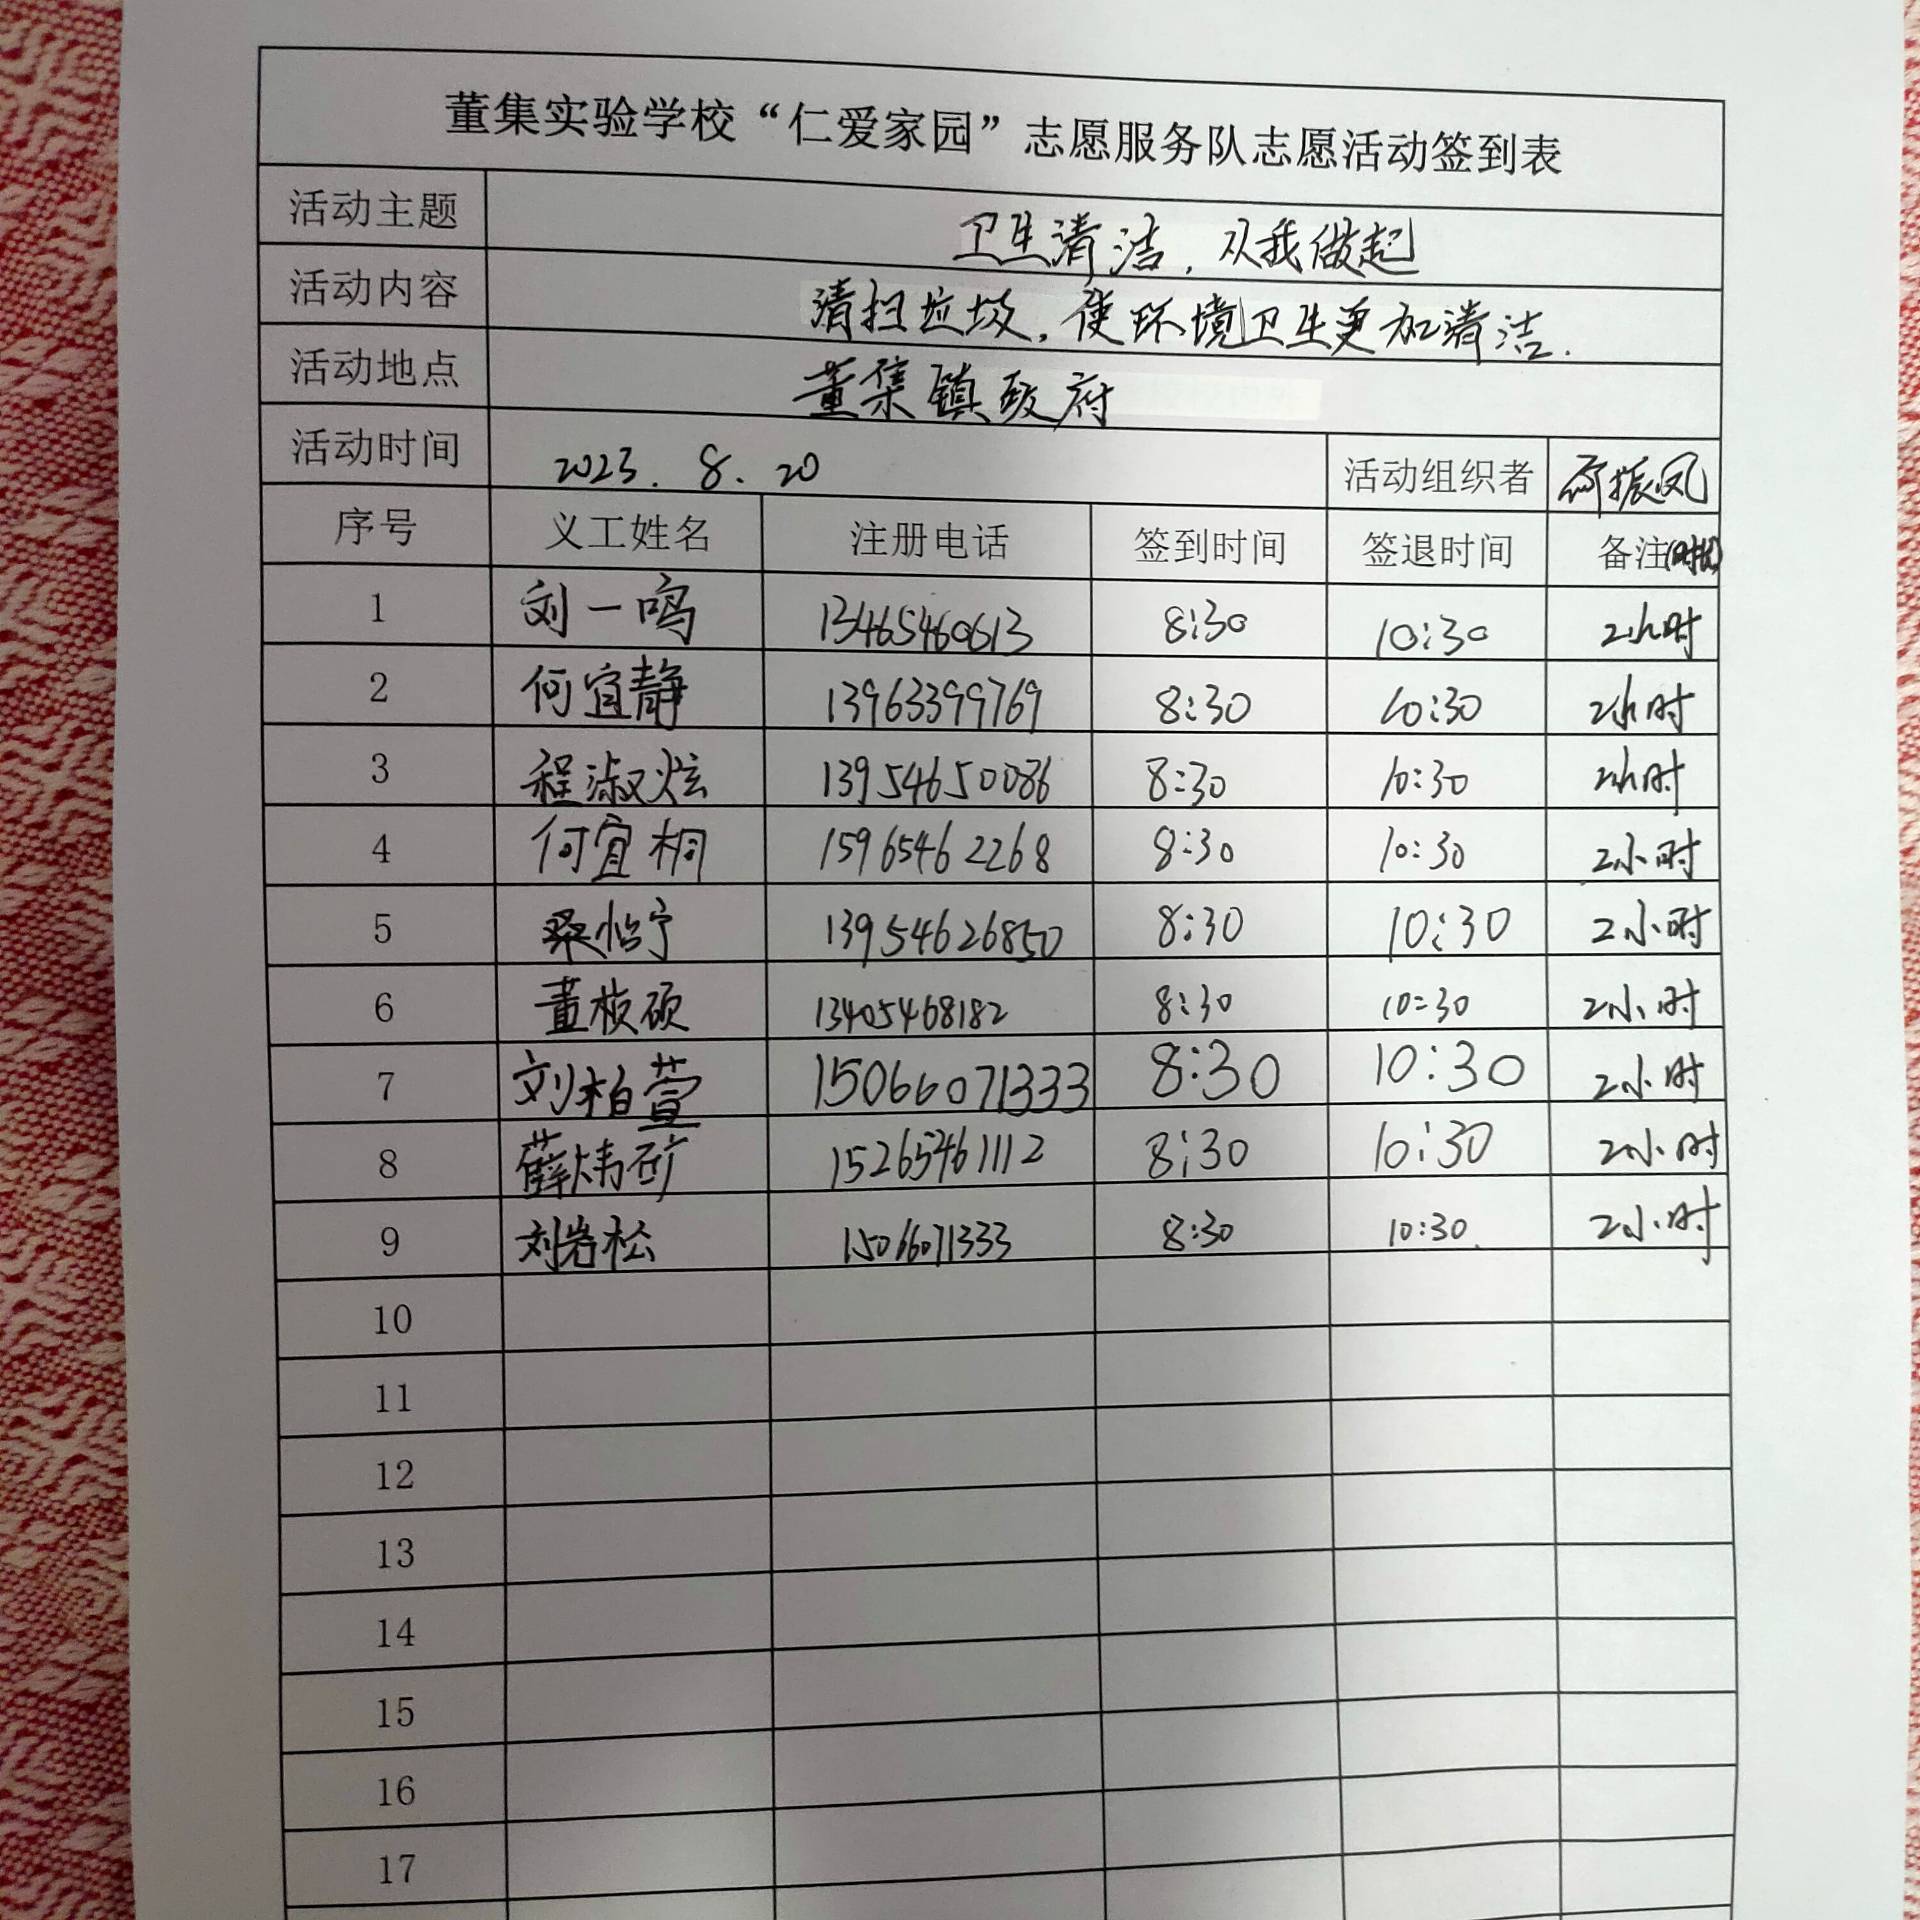 董集实验学校“仁爱家园”志愿服务队志愿活动签到表
活动主题 卫生清洁，从我做起
活动内容 清扫垃圾，使环境卫生更加清洁.
活动地点 董集镇政府
活动时间 2023.8.20 活动组织者 振凤
序号 义工姓名 注册电话 签到时间 签退时间 备注(时长)
1 刘一鸣 13465460613 8:30 10:30 2小时
2 何宜静 13963399769 8:30 10:30 2小时
3 程淑炫 13954650086 8:30 10:30 2小时
4 何宜桐 15965462268 8:30 10:30 2小时
5 桑怡宁 13954626850 8:30 10:30 2小时
6 董桉硕 13405468182 8:30 10:30 2小时
7 刘柏萱 15066071333 8:30 10:30 2小时
8 薛炜矿 15265461112 8:30 10:30 2小时
9 刘岩松 15066071333 8:30 10:30. 2小时
10
11
12
13
14
15
16
17